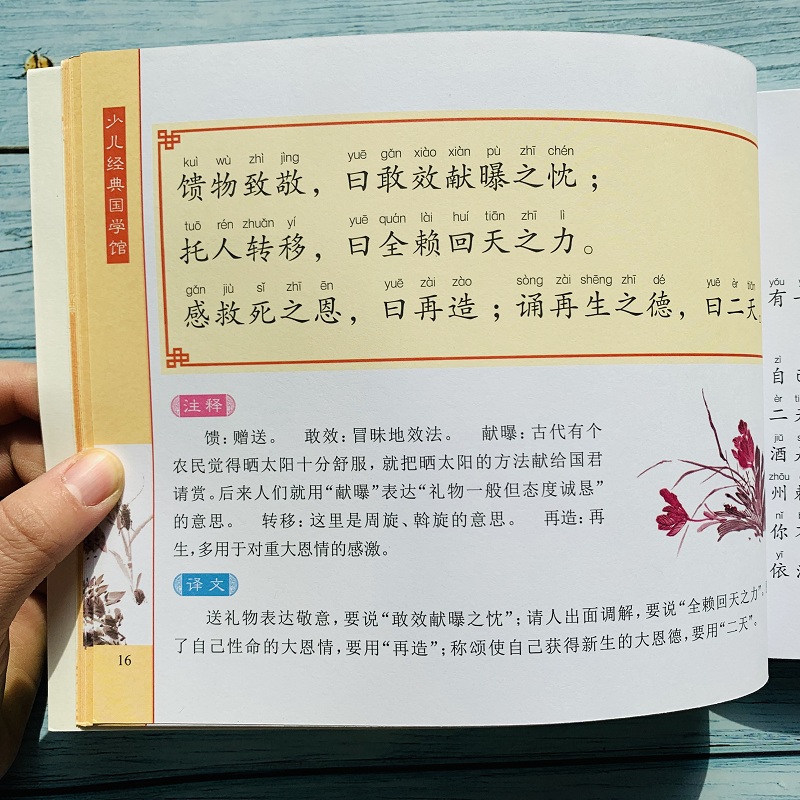 少儿经典国学馆
kuì wù zhì jìng yuē gǎn xiào xiàn pù zhī chén
馈物致敬，曰敢效献曝之忱；
tuō rén zhuǎn yí yuē quán lài huí tiān zhī lì
托人转移，曰全赖回天之力。
gǎn jiù sǐ zhī ēn yuē zài zào sòng zài shēng zhī dé yuē èr tiān
感救死之恩，曰再造；诵再生之德，曰二天。
注释
馈：赠送。 敢效：冒昧地效法。 献曝：古代有个
农民觉得晒太阳十分舒服，就把晒太阳的方法献给国君
请赏。后来人们就用“献曝”表达“礼物一般但态度诚恳”
的意思。 转移：这里是周旋、斡旋的意思。 再造：再
生，多用于对重大恩情的感激。
译文
送礼物表达敬意，要说“敢效献曝之忱”；请人出面调解，要说“全赖回天之力”。
了自己性命的大恩情，要用“再造”；称颂使自己获得新生的大恩德，要用“二天”。
16
yǒu
有
zì
自
èr
二
jiǔ
酒
zhōu
州
nǐ
你
yī
依